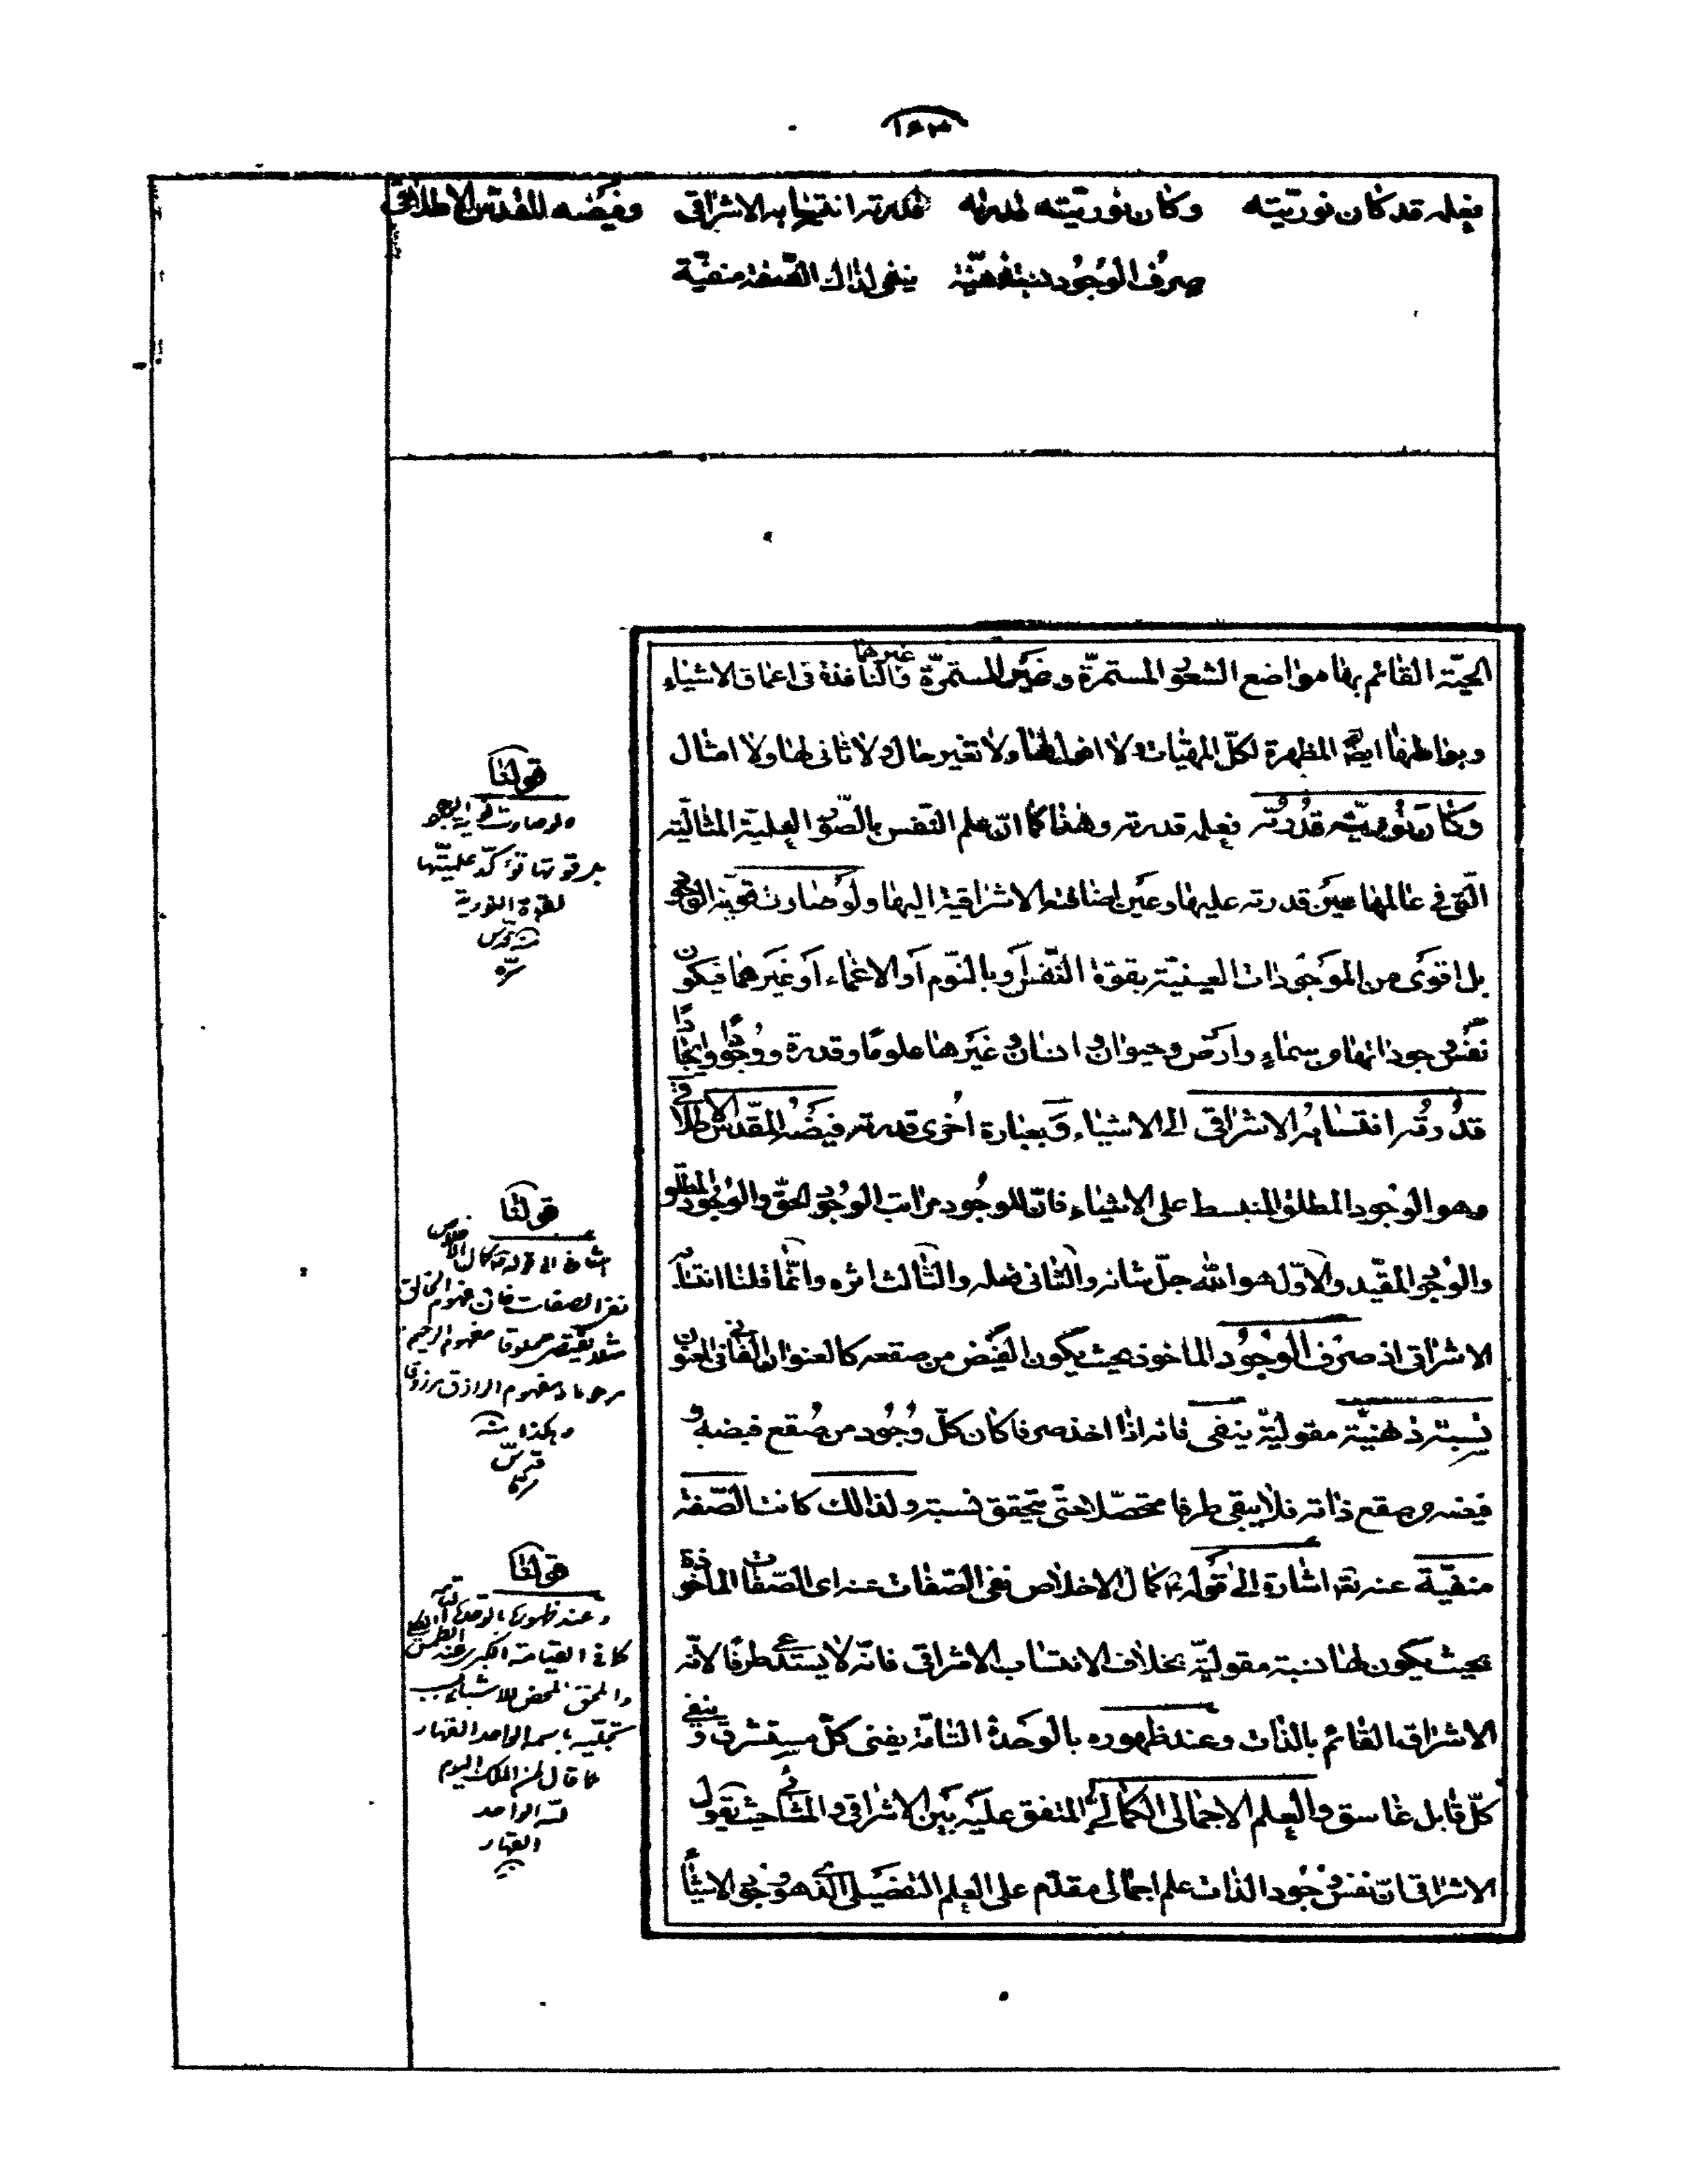 ١٦٣
فعلمه قد كان نوريّته وكان نوريّته قدرته قدرته انتسابه الاشراقى وفيضه المقدّس الاطلاقى
صرف الوجود نسبة ذهنيّة ينفى لذاك الصّفة منفيّة
الحيّة القائم بها مواضع الشعور المستمرّة وغير المستمرّة غيرها فالنافذة فى اعماق الاشياء
وبواطنها ايضا المظهرة لكلّ المهيّات ولا افول لها ولا تغير حال ولا ثانى لها ولا امثال
وكان نوريّته قدرته فعلمه قدرته وهذا كما انّ علم النّفس بالصّور العلميّة المثاليّه
الّتى فى عالمها عين قدرته عليها وعين اضافته الاشراقية اليها ولو صارت قويّة الوجود
بل اقوى من الموجودات العينيّة بقوّة النّفس او بالنّوم او الاغماء او غيرهما فيكون
نفس وجوداتها من سماء وارض وحيوان وانسان وغيرها علوما وقدرة ووجودا وايجادا
قدرته انتسابه الاشراقى الى الاشياء وبعبارة اخرى قدرته فيضه المقدّس الاطلاقى
وهو الوجود المطلق المنبسط على الاشياء فانّ للوجود مراتب الوجود الحقّ والوجود المطلق
والوجود المقيّد والاوّل هو الله جلّ شانه والثانى فعله والثالث اثره وانّما قلنا انتسابه
الاشراقى اذ صرف الوجود الماخوذ بحيث يكون الفيض من صقعه كالعنوان الفانى فى المعنون
نسبة ذهنيّة مقوليّة ينفى فانه اذا اخذ صرفا كان كلّ وجود من صقع فيضه و
فيضه من صقع ذاته فلا يبقى طرفا متحصّلا حتّى يتحقق نسبة ولذالك كانت الصّفة
منفيّة عنه تعم اشارة الى قوله ع كمال الاخلاص نفى الصّفات عنه اى الصّفات الماخوذة
بحيث يكون لها نسبة مقوليّة بخلاف الانتساب الاشراقى فانّه لا يستدعى طرفا لانّه
الاشراق القائم بالذّات وعند ظهوره بالوحدة التّامّة يفنى كلّ مستشرق و ينفى
كلّ قابل غاسق والعلم الاجمالى الكمالى المتفق عليه بين الاشراقى والمشائى حيث يقول
الاشراقى انّ نفس وجود الذّات علم اجمالى مقدّم على العلم التفصيلى الذى هو وجود الاشياء
قولنا
ولو صارت قوية الوجود
بل قوتها تؤكّد علميّتها
للقوة النورية
منه قدّس
سرّه
قولنا
اشارة الى قوله ع كمال الاخلاص
نفى الصفات فان مفهوم الخالق
مثلا يقتضى مخلوقا مفهوم الرحيم
مرحوما ومفهوم الرازق مرزوقا
وهكذا منه
قدّس
سرّه
قولنا
وعند ظهوره بالوحدة التامة
كما فى القيامة الكبرى عند الطمس
والمحق المحض للاشياء بسبب
تجلّيه باسمه الواحد القهار
كما قال لمن الملك اليوم
لله الواحد
القهار